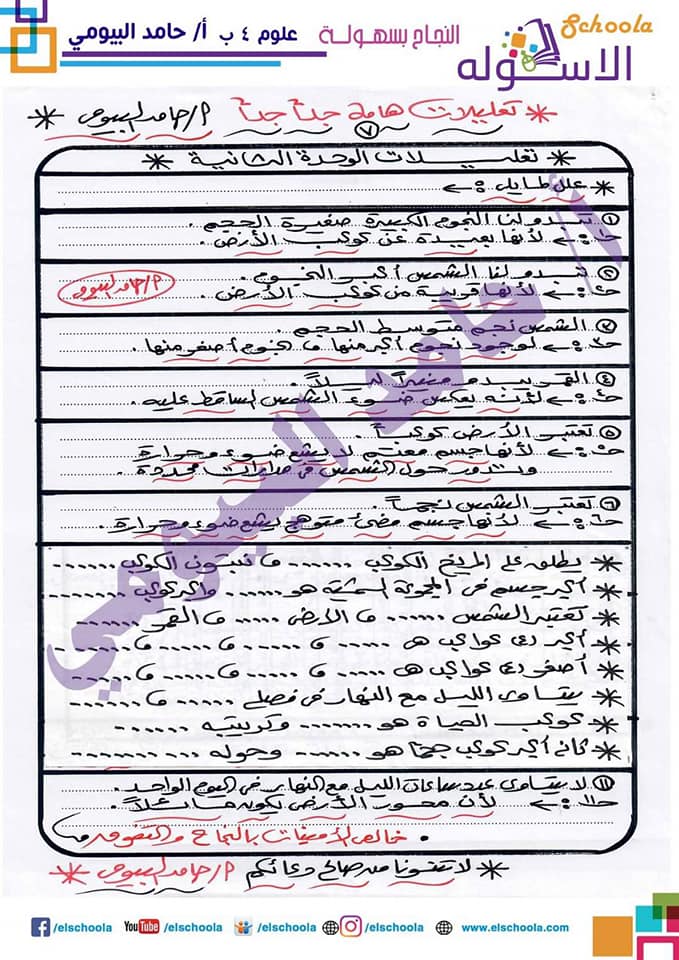 Schoola
الاسكوله
النجاح بسهولة
علوم ٤ ب أ/ حامد البيومي
* تعليلات هامة جداً جداً م/حامد البيومى *
٧
* تعليلات الوحدة الثانية *
* علل لما يلى :←
١ تبدو لنا النجوم الكبيرة صغيرة الحجم.
حـ١ :← لأنها بعيدة عن كوكب الأرض.
٢ تبدو لنا الشمس أكبر النجوم.
حـ٢ :← لأنها قريبة من كوكب الأرض. م/حامد البيومى
٣ الشمس نجم متوسط الحجم.
حـ٣ :← لوجود نجوم أكبر منها و نجوم أصغر منها.
٤ القمر يبدو منيراً ليلاً.
حـ٤ :← لأنه يعكس ضوء الشمس الساقط عليه.
٥ تعتبر الأرض كوكباً.
حـ٥ :← لأنها جسم معتم لا يشع ضوء وحرارة
وتدور حول الشمس فى مدارات محددة.
٦ تعتبر الشمس نجماً.
حـ٦ :← لأنها جسم مضئ متوهج يشع ضوء وحرارة.
* يطلق على المريخ الكوكب ...... و نبتون الكوكب ......
* أكبر جسم فى المجموعة الشمسية هو ...... وأكبر كوكب ......
* تعتبر الشمس ...... و الأرض ...... و القمر ......
* أكبر ٤ كواكب هى ...... و ...... و ...... و ......
* أصغر ٤ كواكب هى ...... و ...... و ...... و ......
* يتساوى الليل مع النهار فى فصلى ...... و ......
* كوكب الحياة هو ...... وكوكب ......
* ثانى أكبر كوكب حجمًا هو ...... وحوله ......
١١ لا يتساوى عدد ساعات الليل مع النهار فى اليوم الواحد.
حـ١١ :← لأن محور الأرض يكون مائلاً.
• خالص الأمنيات بالنجاح والتفوق
* لا تنسونا من صالح دعائكم م/حامد البيومى *
أ/ حامد البيومي
/elschoola
YouTube /elschoola
/elschoola
/elschoola
www.elschoola.com